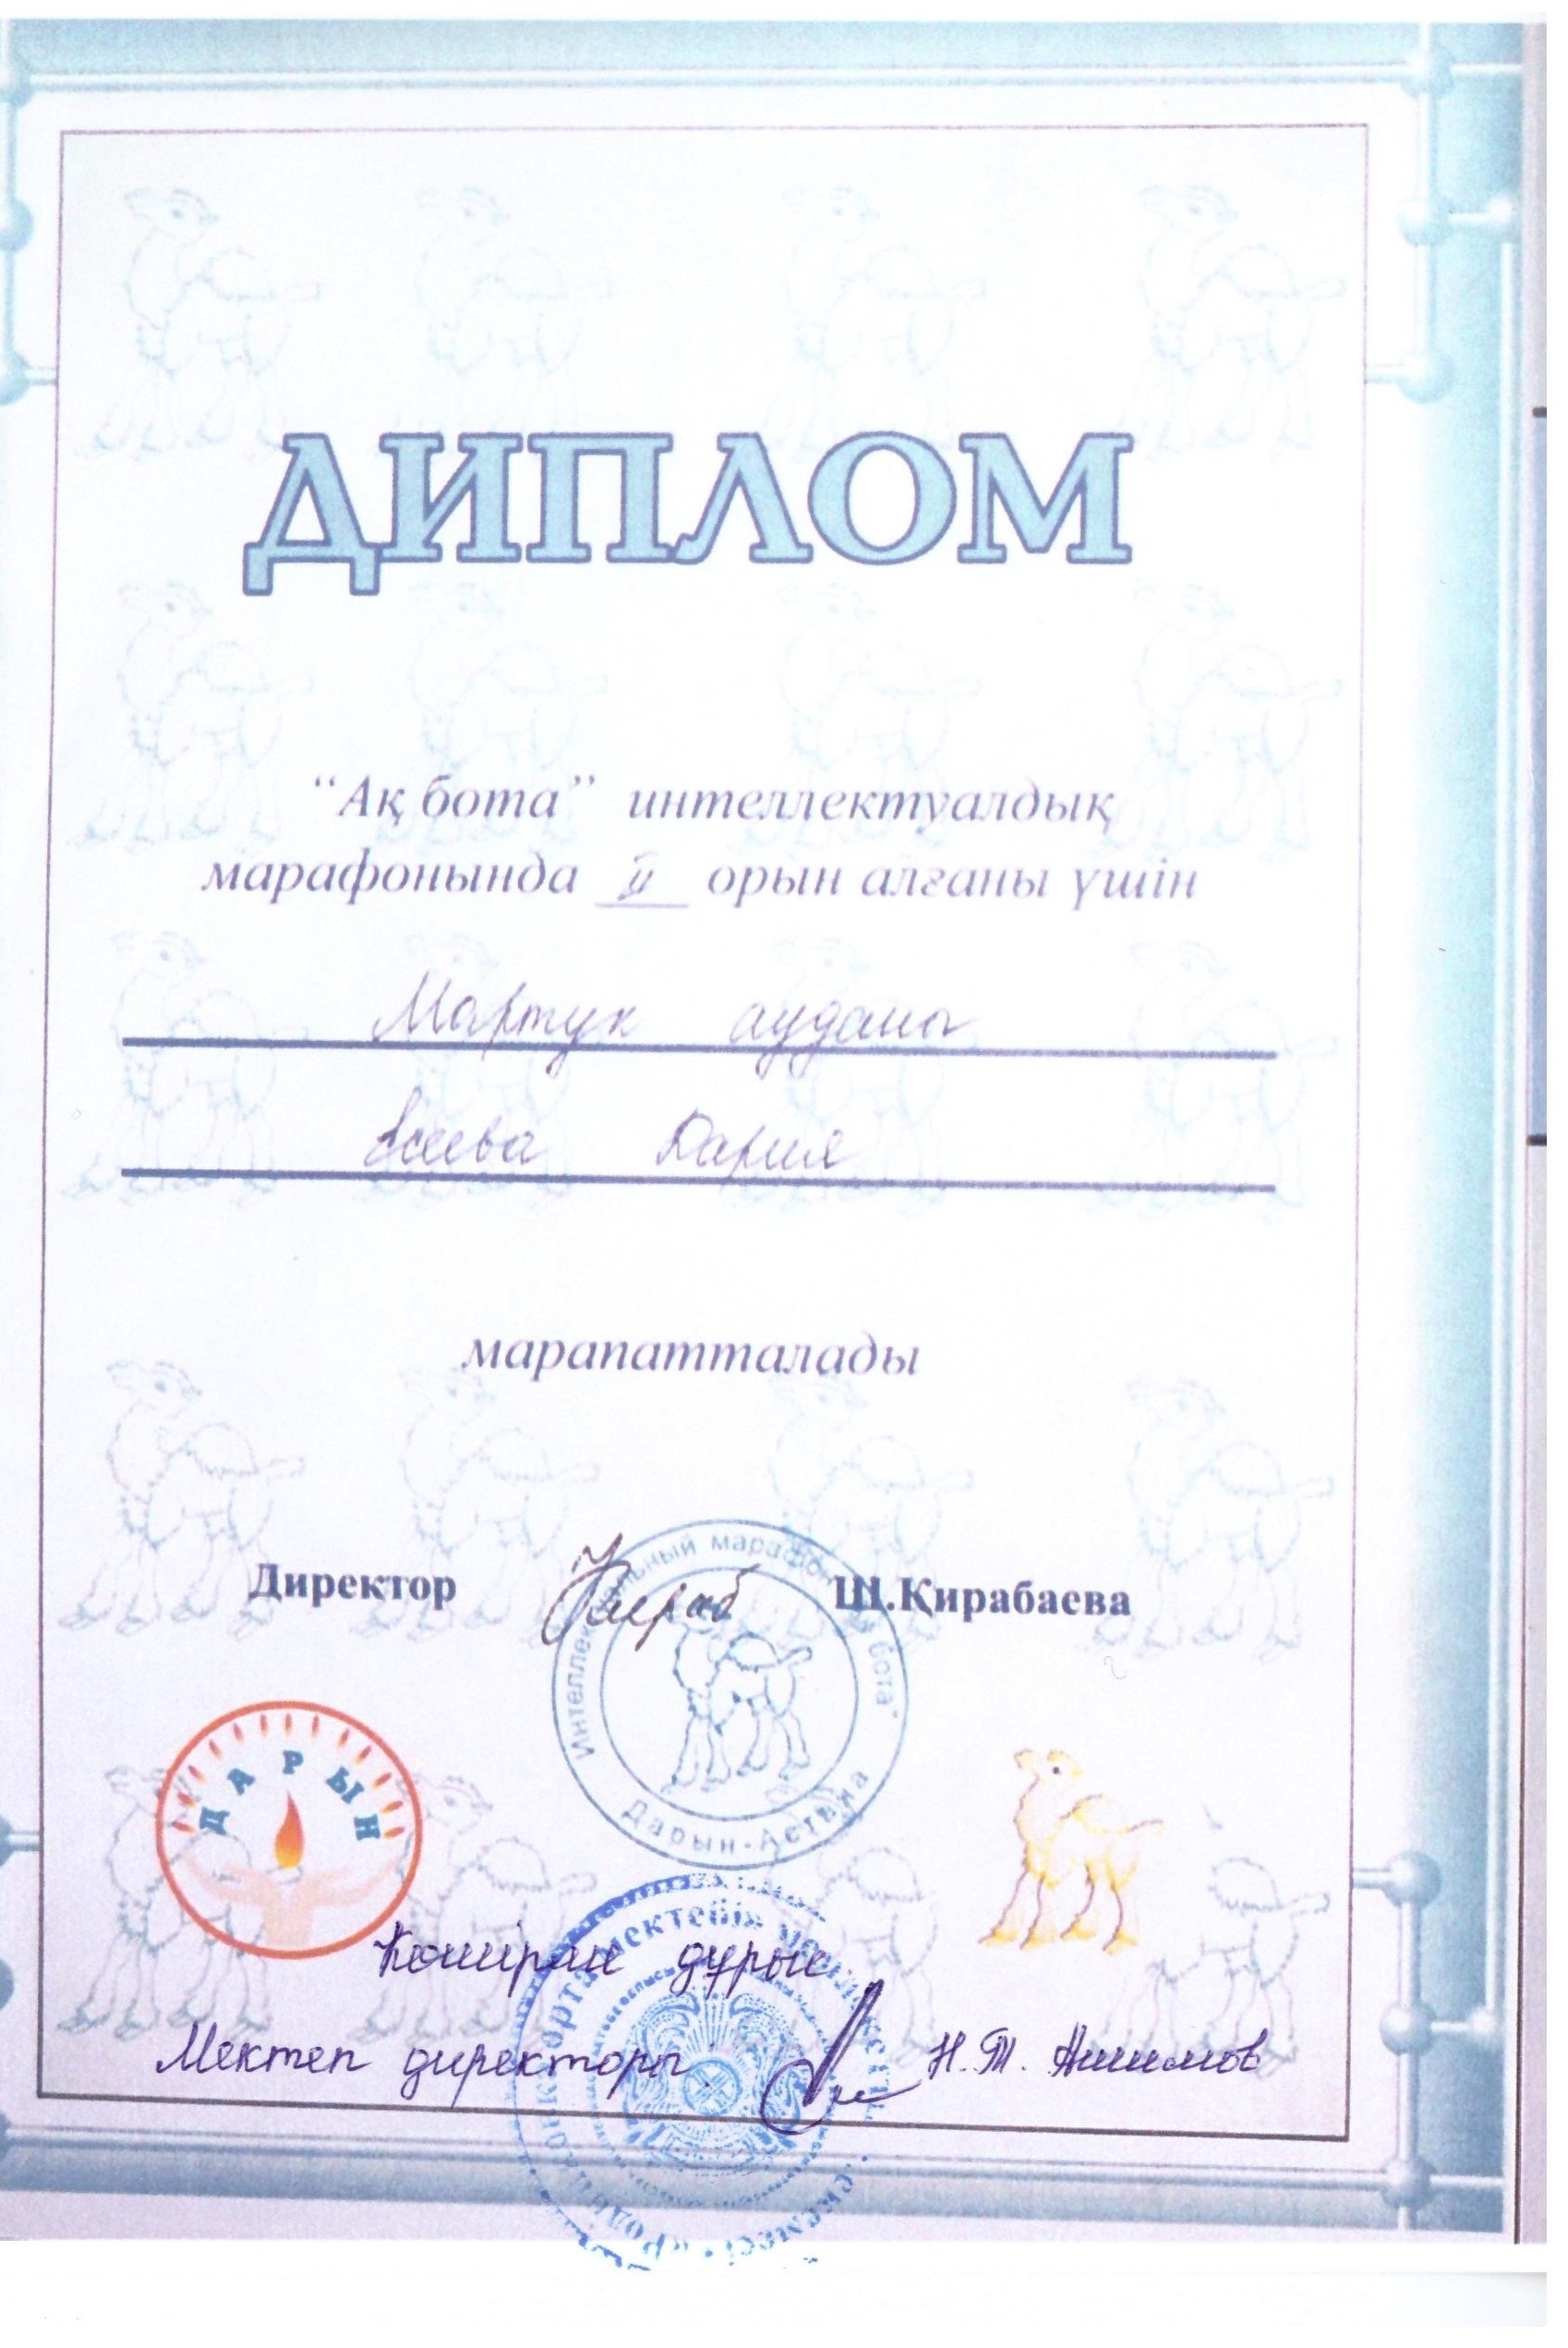 ДИПЛОМ
“Ақ бота” интеллектуалдық
марафонында II орын алғаны үшін
Мартук ауданы
Дария
марапатталады
Директор Ш.Қирабаева
Интеллектуальный марафон бота"
Дарын-Астана
ДАРЫН
Көшірме дұрыс
Мектеп директоры Н.Т.